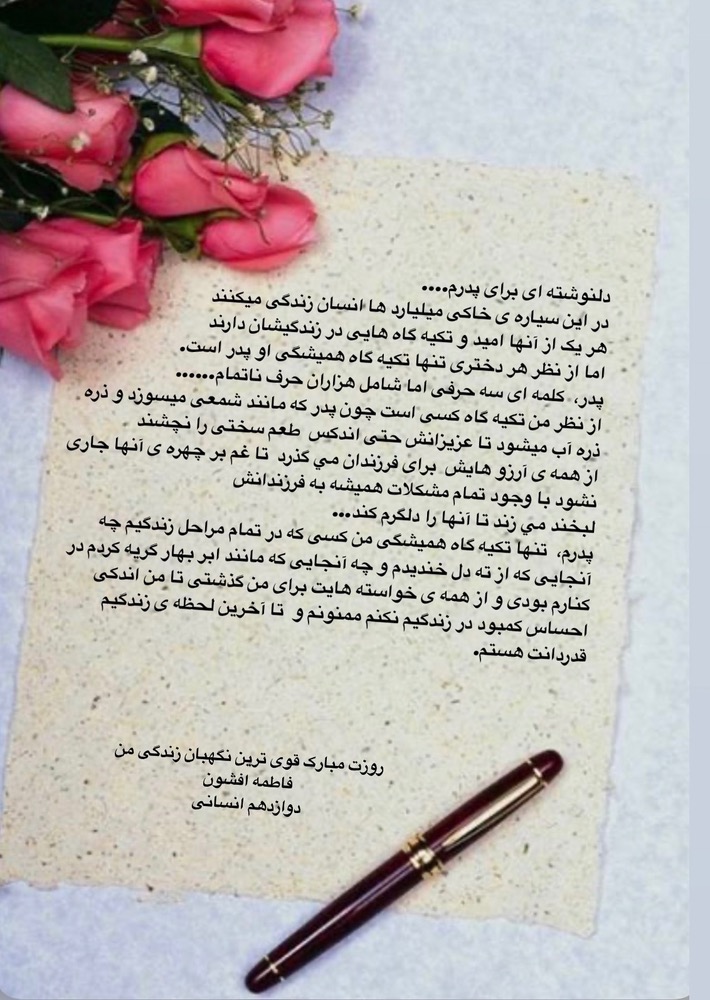 دلنوشته ای برای پدرم....
در این سیاره ی خاکی میلیارد ها انسان زندگی میکنند
هر یک از آنها امید و تکیه گاه هایی در زندگیشان دارند
اما از نظر هر دختری تنها تکیه گاه همیشگی او پدر است.
پدر، کلمه ای سه حرفی اما شامل هزاران حرف ناتمام......
از نظر من تکیه گاه کسی است چون پدر که مانند شمعی میسوزد و ذره
ذره آب میشود تا عزیزانش حتی اندکس طعم سختی را نچشند
از همه ی آرزو هایش برای فرزندان می گذرد تا غم بر چهره ی آنها جاری
نشود با وجود تمام مشکلات همیشه به فرزندانش
لبخند می زند تا آنها را دلگرم کند...
پدرم، تنها تکیه گاه همیشگی من کسی که در تمام مراحل زندگیم چه
آنجایی که از ته دل خندیدم و چه آنجایی که مانند ابر بهار گریه کردم در
کنارم بودی و از همه ی خواسته هایت برای من گذشتی تا من اندکی
احساس کمبود در زندگیم نکنم ممنونم و تا آخرین لحظه ی زندگیم
قدردانت هستم.
روزت مبارک قوی ترین نگهبان زندگی من
فاطمه افشون
دوازدهم انسانی